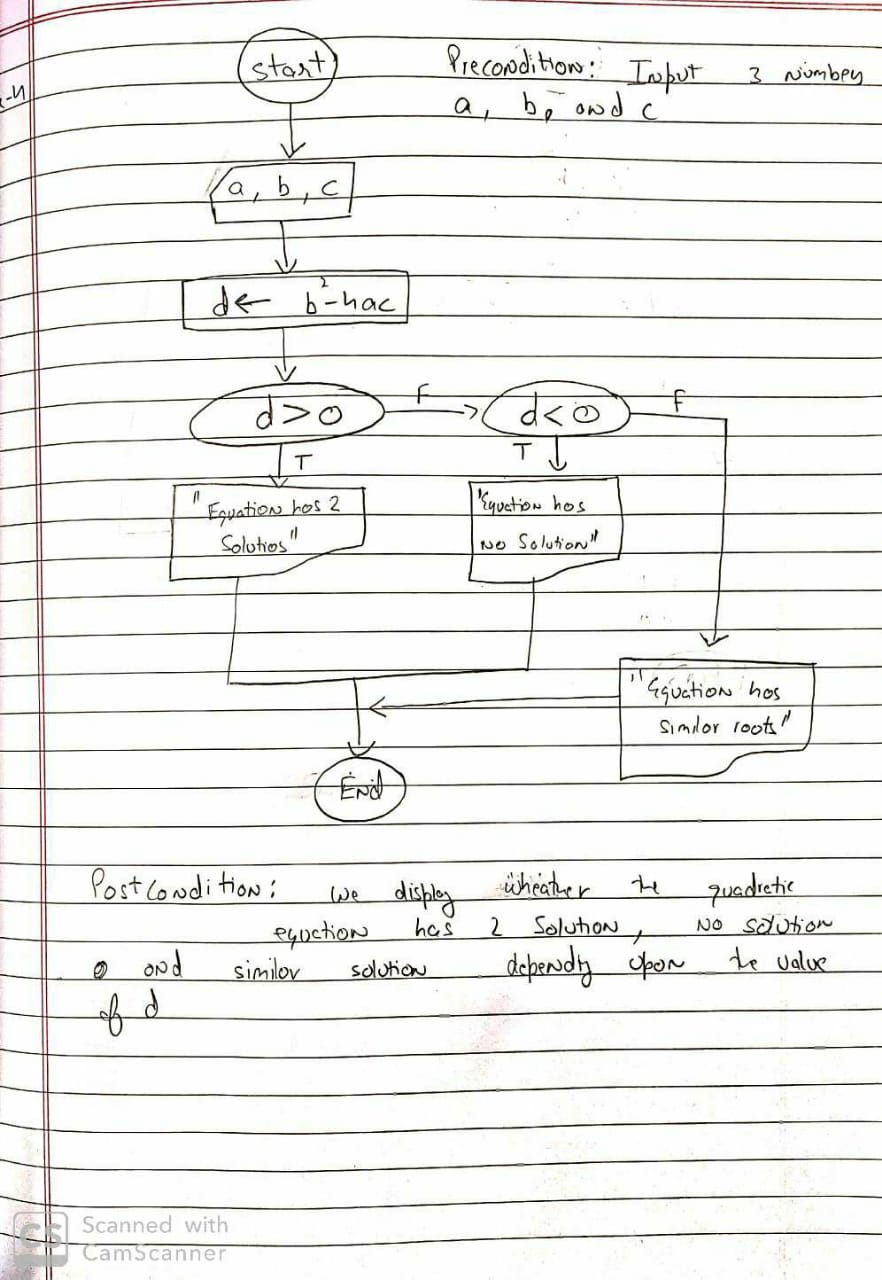 start
Precondition: Input 3 number
a, b, and c
a, b, c
d ← b²-4ac
d>0
F
d<0
F
T
T
"Equation has 2
Solutios"
"Equation has
No Solution"
"Equation has
similar roots"
End
Postcondition: we display wheather the quadretic
equation has 2 Solution, No solution
and similar solution dependy upon the value
of d
CS Scanned with
CamScanner